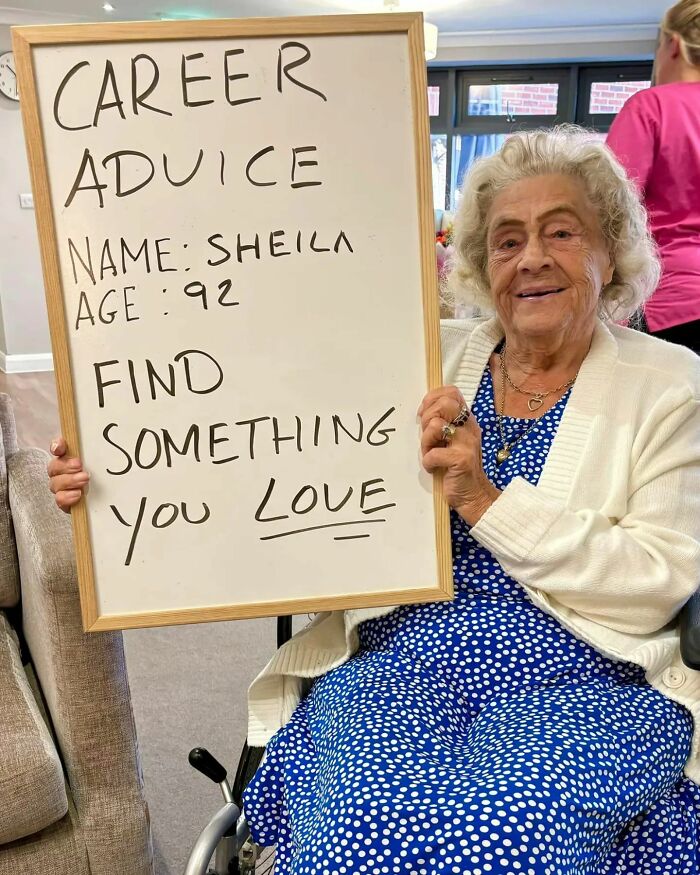 CAREER
ADVICE
NAME: SHEILA
AGE: 92
FIND
SOMETHING
YOU LOVE